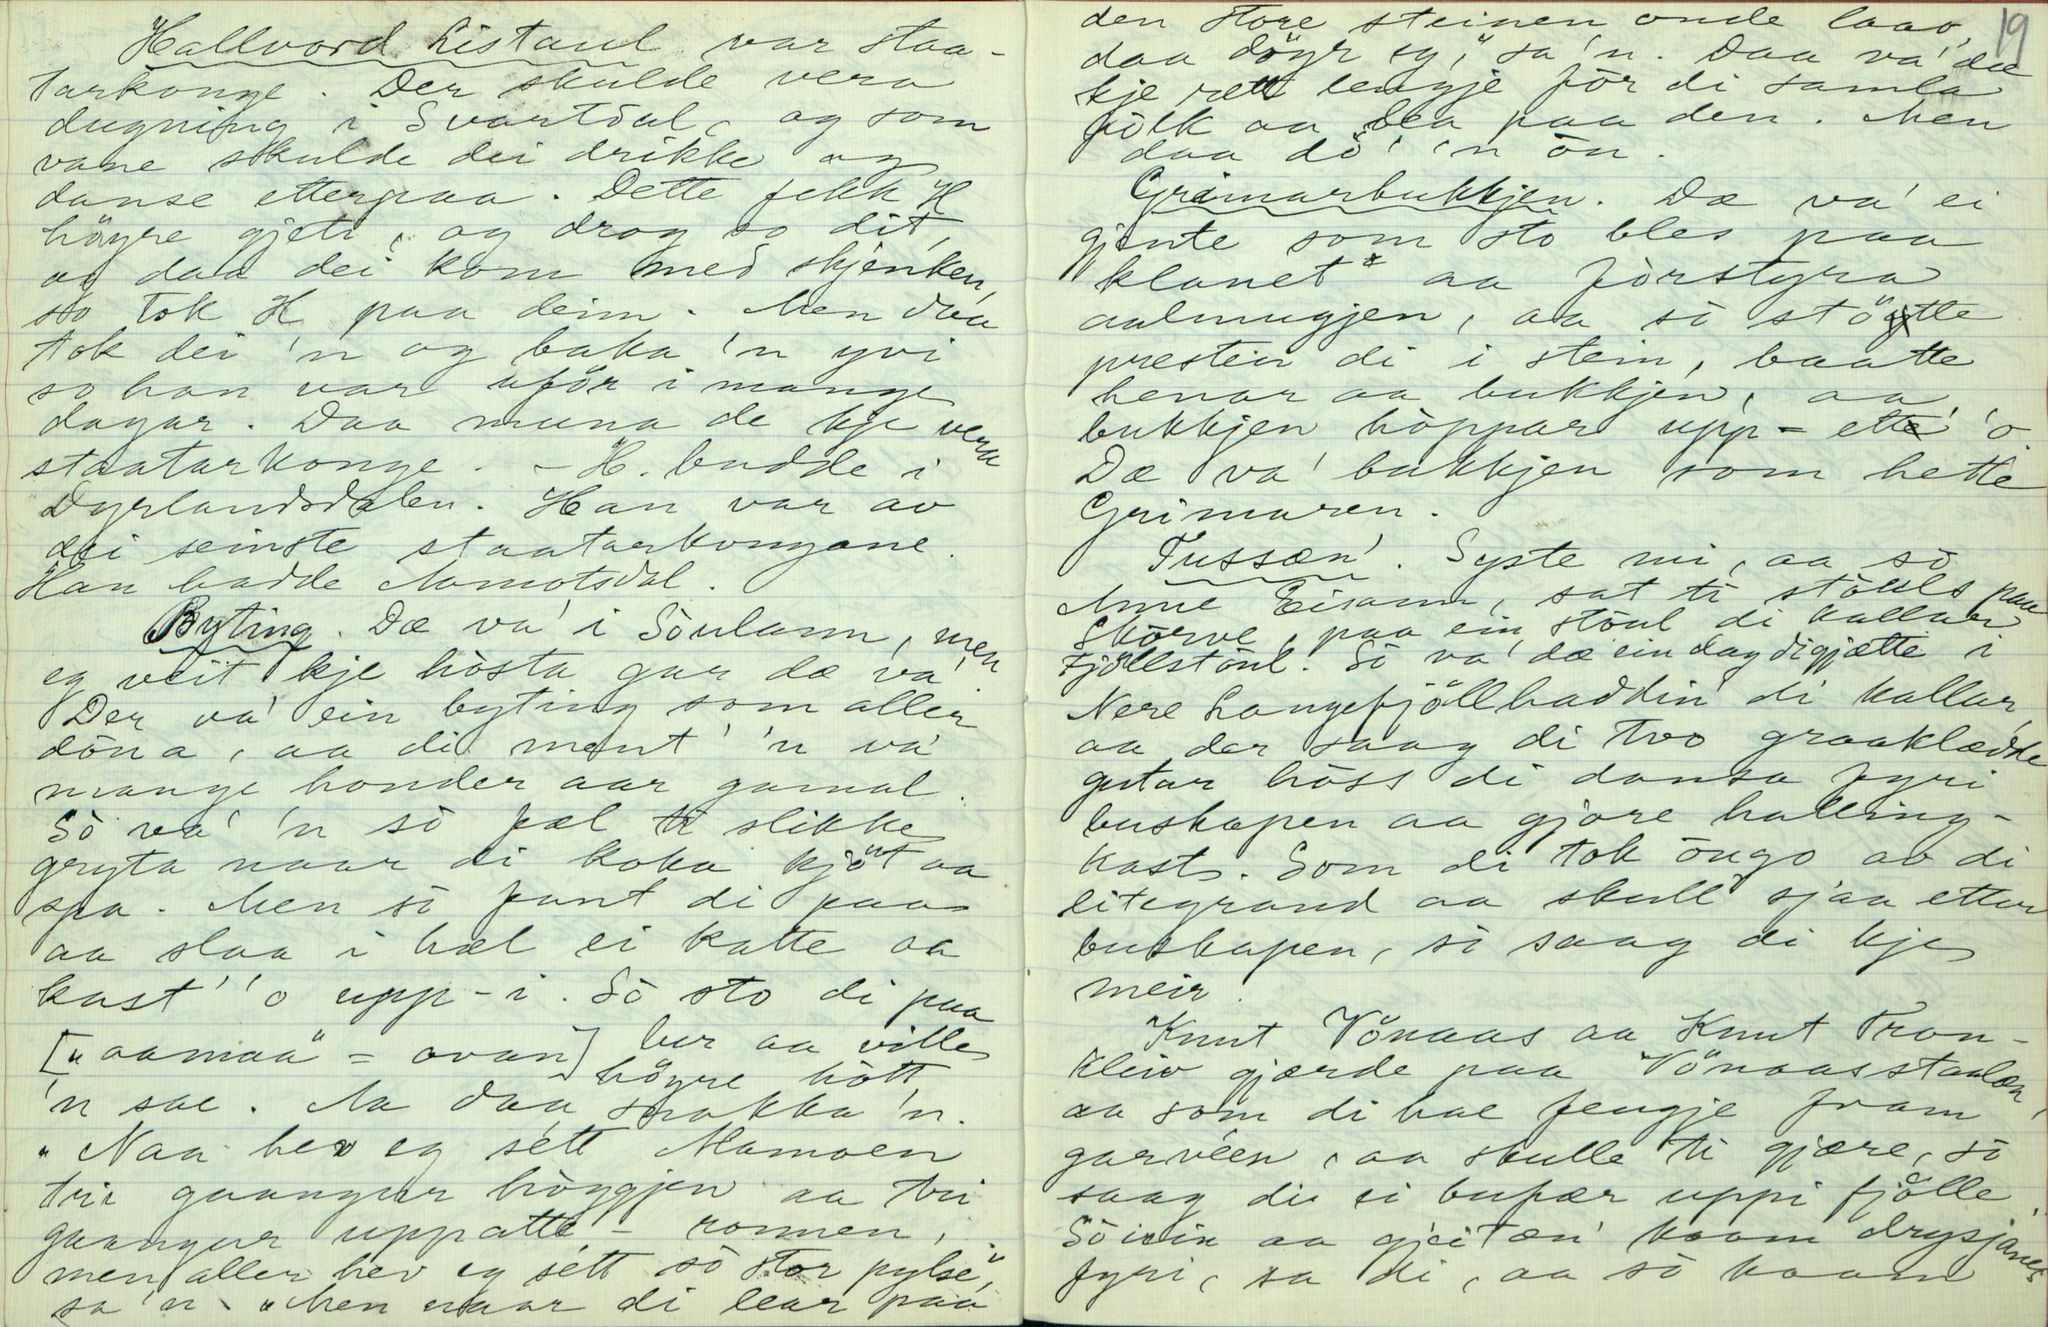 Hallvord Listaul var staa-
tarkonge. Der skulde vera
dugning i Svartdal, og som
vane skulde dei drikke og
danse etterpaa. Dette fekk H
höyre gjete, og drog so dit,
og daa dei kom med skjenken,
so tok H paa deim. Men daa
tok dei 'n og baka 'n yvi
so han var uför i mange
dagar. Daa muna de kje vera
staatarkonge. - H. budde i
Dyrlandsdalen. Han var av
dei seinste staatarkongane.
Han hadde Aamotsdal.
Byting. Dæ va' i Sòulann, men
eg veit kje hòsta gar dæ va'.
Der va' ein byting som aller
döna, aa di ment' 'n va'
mange honder aar gamal.
Sò va' 'n sò fæl ti slikke
gryta naar di koka kjöt aa
spa. Men sò fant di paa
aa slaa i hæl ei katte aa
kast' 'o upp-i. Sò sto di paa
["aamaa" = ovan] lur aa ville
höyre hòtt
'n sae. Aa daa snakka 'n.
"Naa hev eg sétt Mamoen
tri gaangur hòggjen aa tri
gaangur uppatte-ronnen,
men aller hev eg sétt sò stor pylse",
sa 'n. "Men naar di lear paa
19
den store steinen onde laav,
daa döyr eg," sa 'n. Daa va' dæ
kje rett lengje fòr di samla
fòlk aa lea paa den. Men
daa dö' 'n òn.
Grimarbukkjen. Dæ va' ei
gjente som sto bles paa
"klanet" aa fòrstyra
aalmugjen, aa sò stöytte
presten di i stein, baatte
henar aa bukkjen, aa
bukkjen hòppar upp-ette' 'o.
Dæ va' bukkjen som hette
Grimaren.
Tussæn'. Syste mi, aa sò
Anne Eisann, sat ti stòuls paa
Skorve, paa ein stòul di kallar
Fjöllstòul. Sò va' dæ ein dag di gjætte i
Nere Langefjöllhaddin di kallar,
aa der saag di two graaklædde
gutar hòss di dansa fyri
buskapen aa gjore halling-
kast. Som di tok òugo av di
litegrand aa skull' sjaa etter
buskapen, sò saag di kje
meir.
Knut Vönaas aa Knut Tron-
kleiv gjærde paa Vönaasstaulæn,
aa som di hae fengje fram
garvéen, aa skulle ti gjære, sò
saag di ei bufær uppi fjölle.
Sòuin aa gjeitæn' kaam drysjanes
fyri, sa di, aa sò kaam